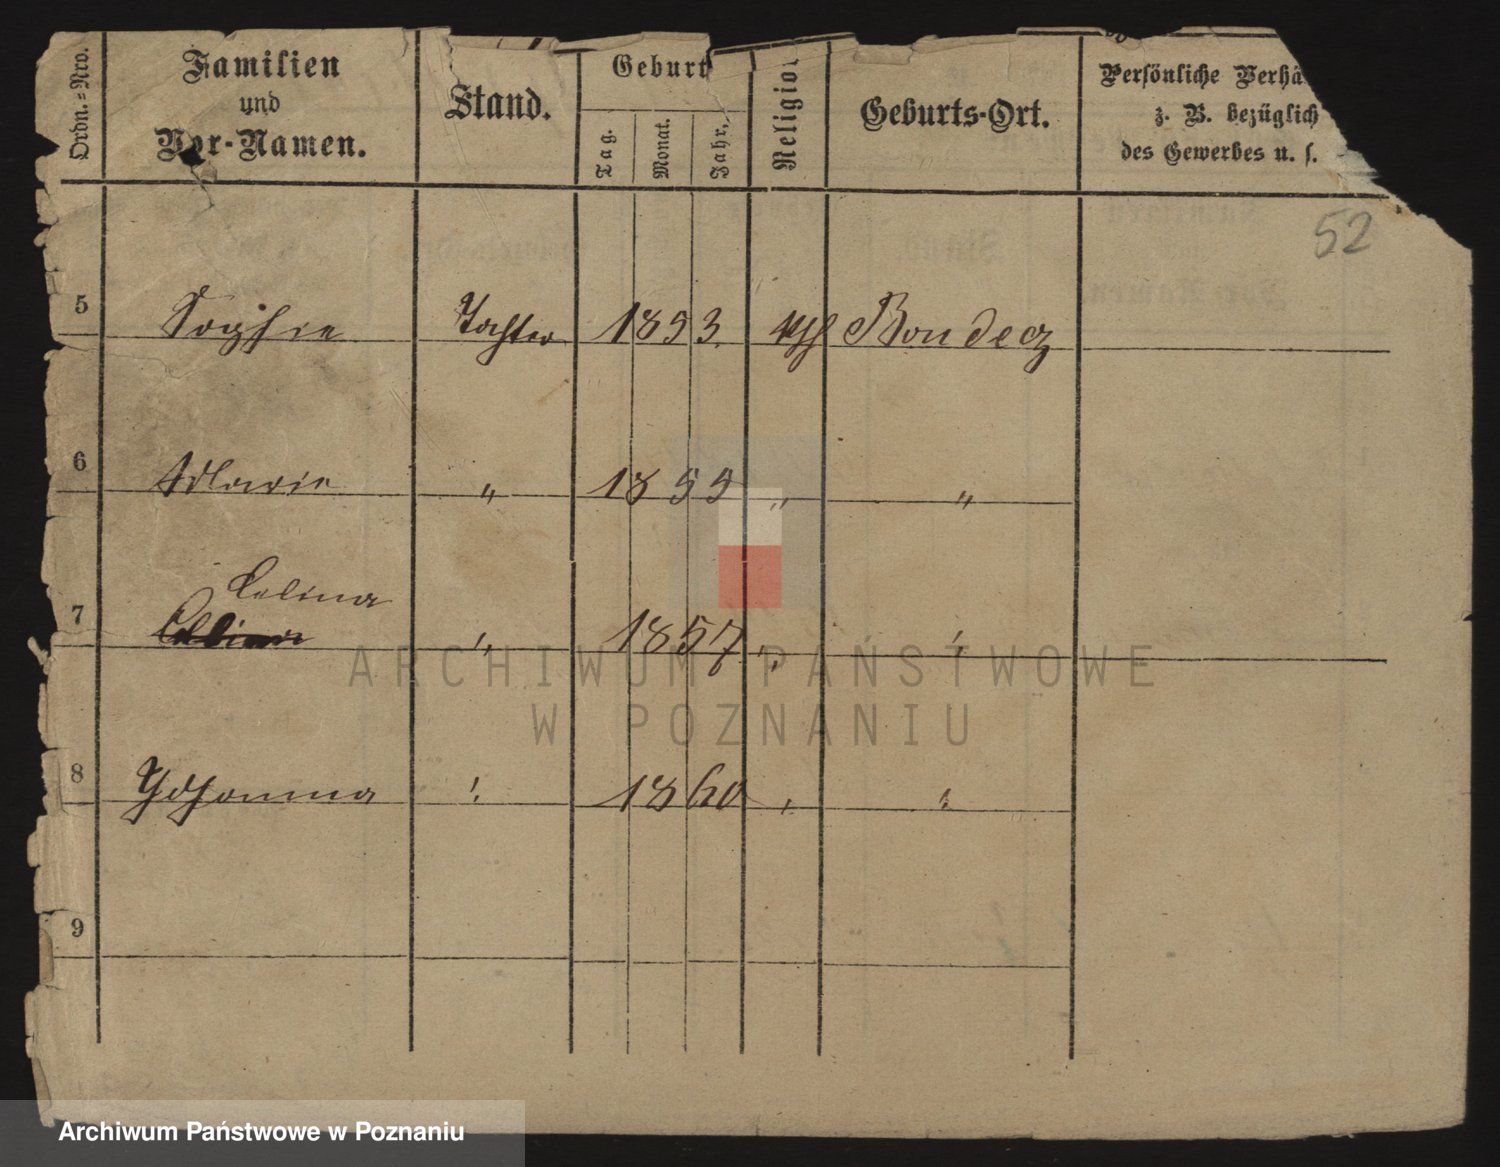 Ordn.-Nro. Familien und Vor-Namen. Stand. Geburt Tag. Monat. Jahr. Religion Geburts-Ort. Persönliche Verhä z. B. bezüglich des Gewerbes u. s.
52
5 Sophie Tochter 1853. Bondecz
6 Marie " 1855 " "
Celina
7 " 1857 " "
8 Johanna " 1860 " "
9
ARCHIWUM PAŃSTWOWE
W POZNANIU
Archiwum Państwowe w Poznaniu